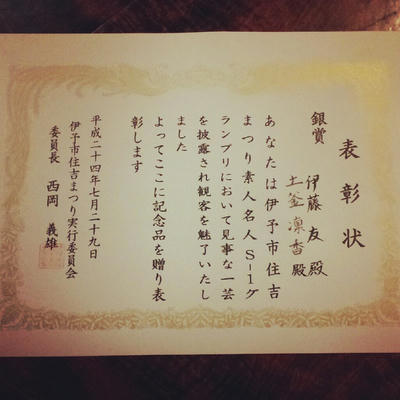 表彰状
銀賞 伊藤 友 殿
土釜凜香殿
あなたは伊予市住吉
まつり素人名人S-1グ
ランプリにおいて見事な一芸
を披露され観客を魅了いたし
ました
よってここに記念品を贈り表
彰します
平成二十四年七月二十九日
伊予市住吉まつり実行委員会
委員長 西岡 義雄